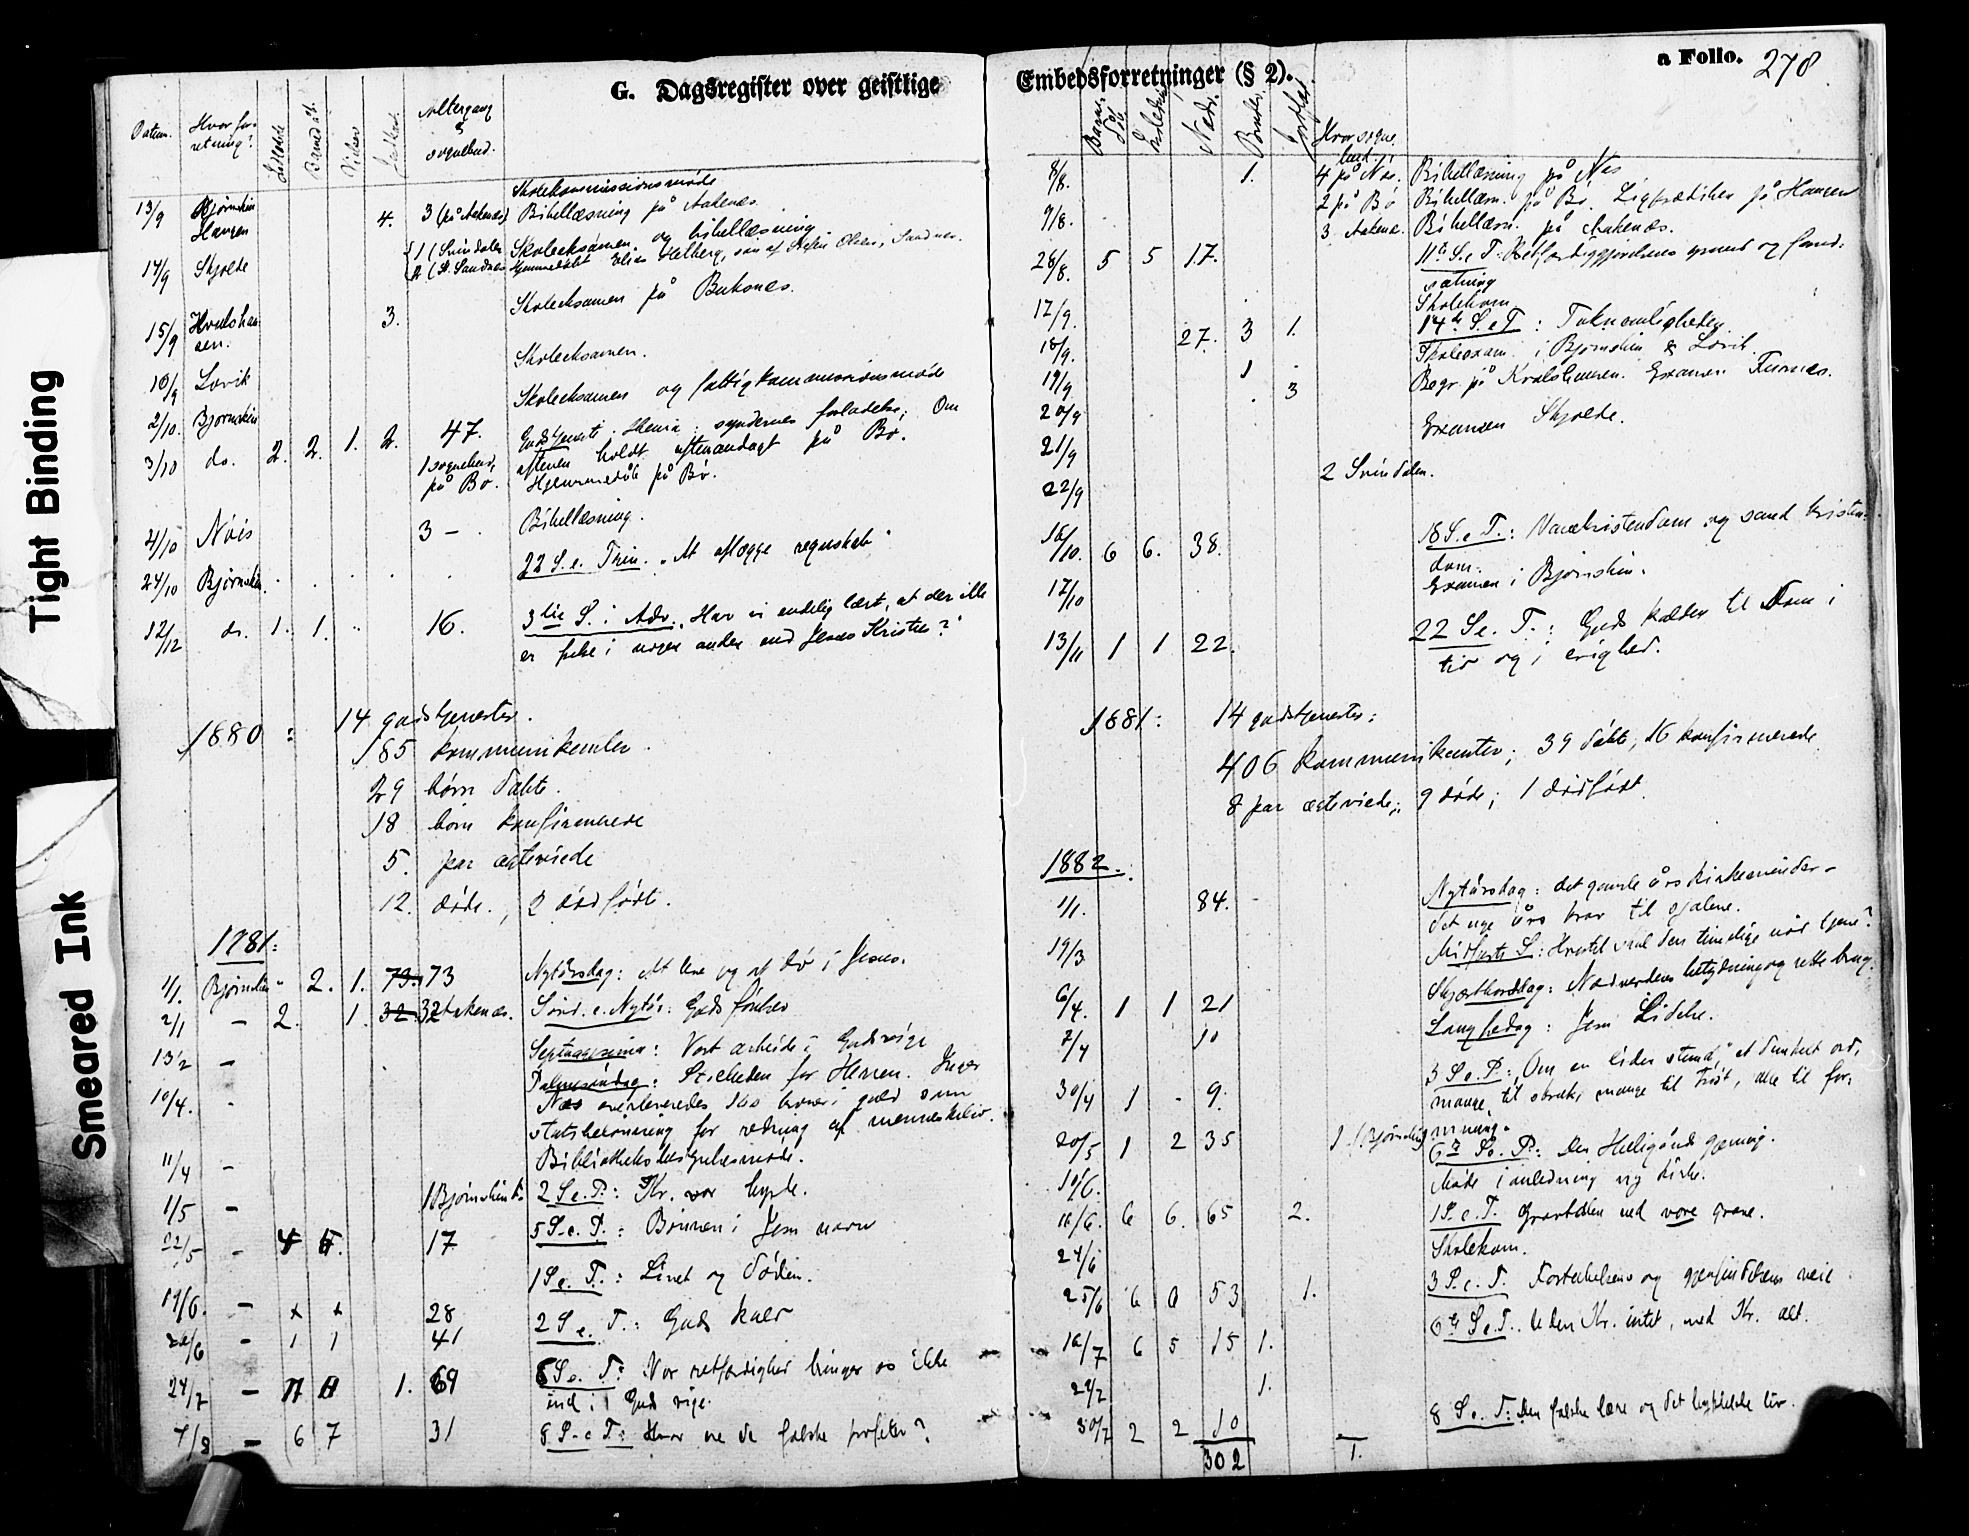 Tight Binding
Smeared Ink
G. Dagsregister over geistlige
Datum.
Hvor for-
retning?
Altergang
&
sognebud.
Skolekommissionsmøde
13/9 Bjørnskin 4. 3 (på Aakenes) Bibellæsning på Aakenes.
Haugen
14/9 Skjolde 1 (Svindalen Skoleeksamen og bibellæsning
Hjemmedøbt Elias Helberg, søn af Olsen, Sandnes.
15/9 3. Skoleeksamen på Buknes.
16/9 Lovik Skoleeksamen.
2/10. Bjørnskin Skoleeksamen og fattigkommissionsmøde
3/10 do. 2. 2. 1. 2. 47. Gudstjeneste. syndernes forladelse; Om
1 sognebud, aftenen holdt aftenandagt på Bø.
på Bø. Hjemmedåb på Bø.
4/10 Nøis 3 – Bibellæsning.
24/10 Bjørnskin. 22 S. e. Trin. "At aflægge regnskab"
12/12 do. 1. 1. 16. 3die S. i Adv. "Har vi endelig lært, at der ikke
er frelse i nogen anden end Jesus Kristus?"
1880: 14 gudstjenester.
185 kommunikanter.
29 børn døbte.
18 børn konfirmerede
5. par ægteviede
12. døde., 2 dødfødte.
1781:
1/1. Bjørnskin 2. 1. 73. 73 Nytårsdag: At leve og at dø i Jesus.
2/1 – 2. 1. 32. 32 Aakenæs. Sønd. e. Nytår: Guds
13/2 – Septuagesima: Vort arbeide i Guds rige
10/4. Palmesøndag: for Herren.
Næs overleveredes kroner i guld som
statsbelønning for redning af menneskeliv.
11/4 – Bibliotheksbestyrelsesmøde.
1/5 – 1 Bjørnskin 2 S. e. P.: Kr. vor hyrde.
22/5 – 17 5 S. e. P.: Bønnen i Jesu navn
1 S e. T.: Livet og døden.
19/6. – x x 28 2 S e. T.: Guds kald
26/6 – 1 1 41
24/7 – 1. 69 6 S. e. T: Vor retfærdighed bringer os ikke
ind i Guds rige.
7/8 – 6 7 31 8 S. e T: Hvor ere de falske profeter?
Embedsforretninger (§ 2).
a Folio. 278
Hvor sogne-
bud
8/8. 1. 4 på Nøs. Bibellæsning på Nøs
9/8. 2 på Bø Bibellæsn. på Bø. Ligprædiken på Haugen
3 Aakenæs. Bibellæsn. på Aakenæs.
28/8. 5 5 17. 11te S. e T: Retfærdiggjørelsens grund og forud-
sætning
17/9. Skolekom.
18/9. 27. 3 1. 14de S. e T: Taknemligheden.
19/9 1 Skoleexam. i Bjørnskin & Lovik.
20/9 3 Begr. på Kvalshausen. Examen Furnes.
21/9 Examen Skjolde.
22/9 2 Svindalen.
16/10. 6 6. 38. 18 S. e T.: Vanekristendom og sand kristen-
dom.
17/10 Examen i Bjørnskin.
13/11 1 1 22. 22 S e. T.: Guds kalden til Dom i
tid og i evighed.
1881: 14 gudstjenester;
406 kommunikanter; 39 døbte, 16 konfirmerede
8 par ægteviede; 9 døde; 1 dødfødt.
1882.
1/1. 84. Nytårsdag: det gamle års kirkeminder –
det nye års krav til sjælene.
19/3 Midfaste S: Hvortil skal den timelige nød tjene?
6/4. 1 1 21 Skjærthorsdag: Nadverdens betydning og rette brug.
7/4 10 Langfredag: Jesu Lidelse.
30/4 1 - 9. 3 S e. P.: "Om en liden stund," et dunkelt ord,
mange til skræk, mange til trøst, alle til for-
maning.
20/5 1 2 35 1 (Bjørnskin) 6te S. e. P.: Den Helligånds gjerning.
10/6. Møde i anledning ny kirke.
18/6. 6 6. 65 2. 1 S. e T. Gravtalen ved vore grave.
24/6 Skolekom.
25/6 6 6 53 1. 3 S. e. T. Fortabelsens og gjenfindelsens veie
16/7 6 5 15 1. 6te S e. T. Uden Kr. intet, med Kr. alt.
29/7 1.
30/7 2 2 10 8 S. e. T: Den falske lære og det hyklelske liv.
302 1.